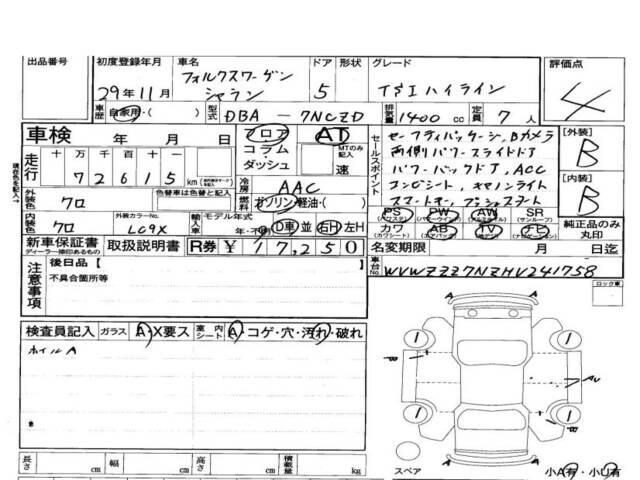 出品番号 初度登録年月 車名 ドア 形状 グレード 評価点
29年11月 フォルクスワーゲン シャラン 5 TSIハイライン 4
車歴 自家用・( ) 型式 DBA - 7NCZD 排気量 1400 cc 定員 7 人
車検 年 月 日 フロア AT
コラム MTのみ記入
ダッシュ 速
走行 十 万 千 百 十 一
7 2 6 1 5 km
セールスポイント
セーフティパッケージ、Bカメラ
両側パワースライドドア
パワーバックドア、ACC
コンビシート、キセノンライト
スマートキー、プッシュスタート
[外装] B
[内装] B
外装色 クロ 色替車は色替と記入 冷房 AAC
ガソリン・軽油・( )
内装色 クロ 外装カラーNo. LC9X 輸入車 モデル年式 年・不明 D車 並 右H 左H
PS PW AW SR (サンルーフ)
カワ AB TV ナビ 純正品のみ丸印
新車保証書 ディーラー捺印あるもの 取扱説明書 R券 ¥ 17,250 名変期限 月 日迄
注意事項 後日品 [ ]
不具合箇所等
車台No. WVWZZZ7NZHV241758
ロック車
検査員記入 ガラス A・X要ス 室内シート A・コゲ・穴・汚れ・破れ
ホイルA
長さ cm 幅 cm 高さ cm 積載量 kg
スペア 小A有・小U有